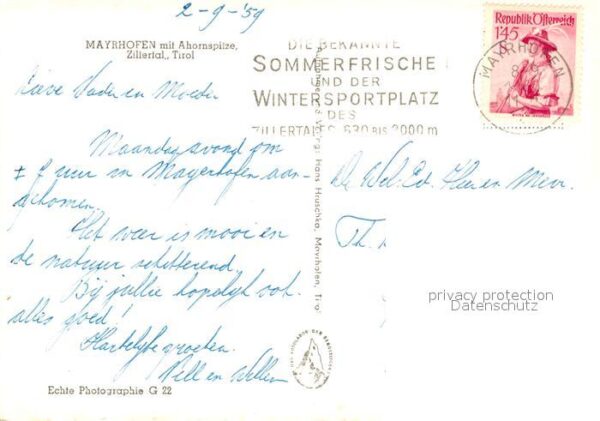 2-9-'59
MAYRHOFEN mit Ahornspitze,
Zillertal, Tirol
Lieve Vader en Moeder
Maandagavond om
± 7 uur in Mayerhofen aan-
gekomen.
Het weer is mooi en
de natuur schitterend.
Bij jullie hopelijk ook
alles goed!
Hartelijke groeten.
Nell en Willem
Echte Photographie G 22
Hans Hruschka, Mayrhofen, Tirol
DIE BEKANNTE
SOMMERFRISCHE
UND DER
WINTERSPORTPLATZ
DES
ZILLERTALES 630 BIS 2000 m
Republik Österreich
1'45
MAYRHOFEN
De Wel. Ed. Heer en Mevr.
Th.
privacy protection
Datenschutz